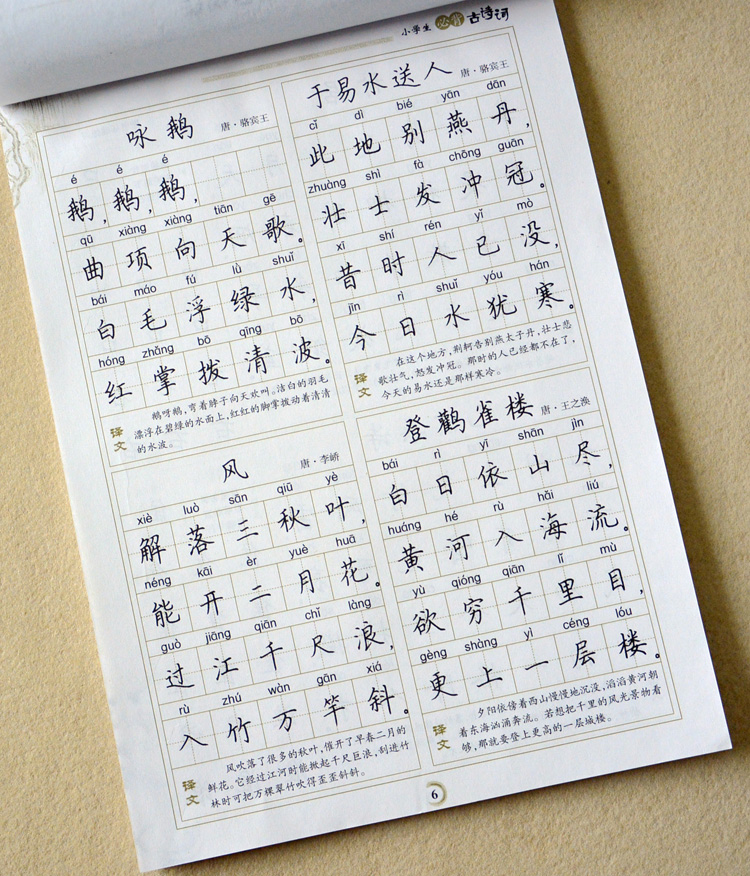 小学生必背古诗词
咏鹅 唐·骆宾王
é é é
鹅,鹅,鹅,
qū xiàng xiàng tiān gē
曲项向天歌。
bái máo fú lǜ shuǐ
白毛浮绿水,
hóng zhǎng bō qīng bō
红掌拨清波。
译文
鹅呀鹅,弯着脖子向天欢叫。洁白的羽毛
漂浮在碧绿的水面上,红红的脚掌拨动着清清
的水波。
风 唐·李峤
xiè luò sān qiū yè
解落三秋叶,
néng kāi èr yuè huā
能开二月花。
guò jiāng qiān chǐ làng
过江千尺浪,
rù zhú wàn gān xiá
入竹万竿斜。
译文
风吹落了很多的秋叶,催开了早春二月的
鲜花。它经过江河时能掀起千尺巨浪,刮进竹
林时可把万棵翠竹吹得歪歪斜斜。
于易水送人 唐·骆宾王
cǐ dì bié yān dān
此地别燕丹,
zhuàng shì fà chōng guān
壮士发冲冠。
xī shí rén yǐ mò
昔时人已没,
jīn rì shuǐ yóu hán
今日水犹寒。
译文
在这个地方,荆轲告别燕太子丹,壮士悲
歌壮气,怒发冲冠。那时的人已经都不在了,
今天的易水还是那样寒冷。
登鹳雀楼 唐·王之涣
bái rì yī shān jìn
白日依山尽,
huáng hé rù hǎi liú
黄河入海流。
yù qióng qiān lǐ mù
欲穷千里目,
gèng shàng yì céng lóu
更上一层楼。
译文
夕阳依傍着西山慢慢地沉没,滔滔黄河朝
着东海汹涌奔流。若想把千里的风光景物看
够,那就要登上更高的一层城楼。
6